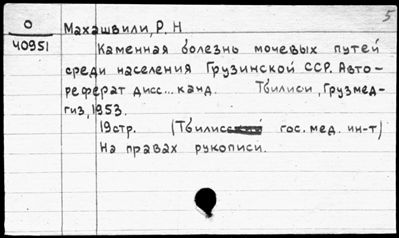 5
О
40951
Махашвили, Р. Н
Каменная болезнь мочевых путей
среди населения Грузинской ССР. Авто-
реферат дисс... канд. Тбилиси, Грузмед-
гиз, 1953.
19стр. (Тбилис гос. мед. ин-т)
На правах рукописи.